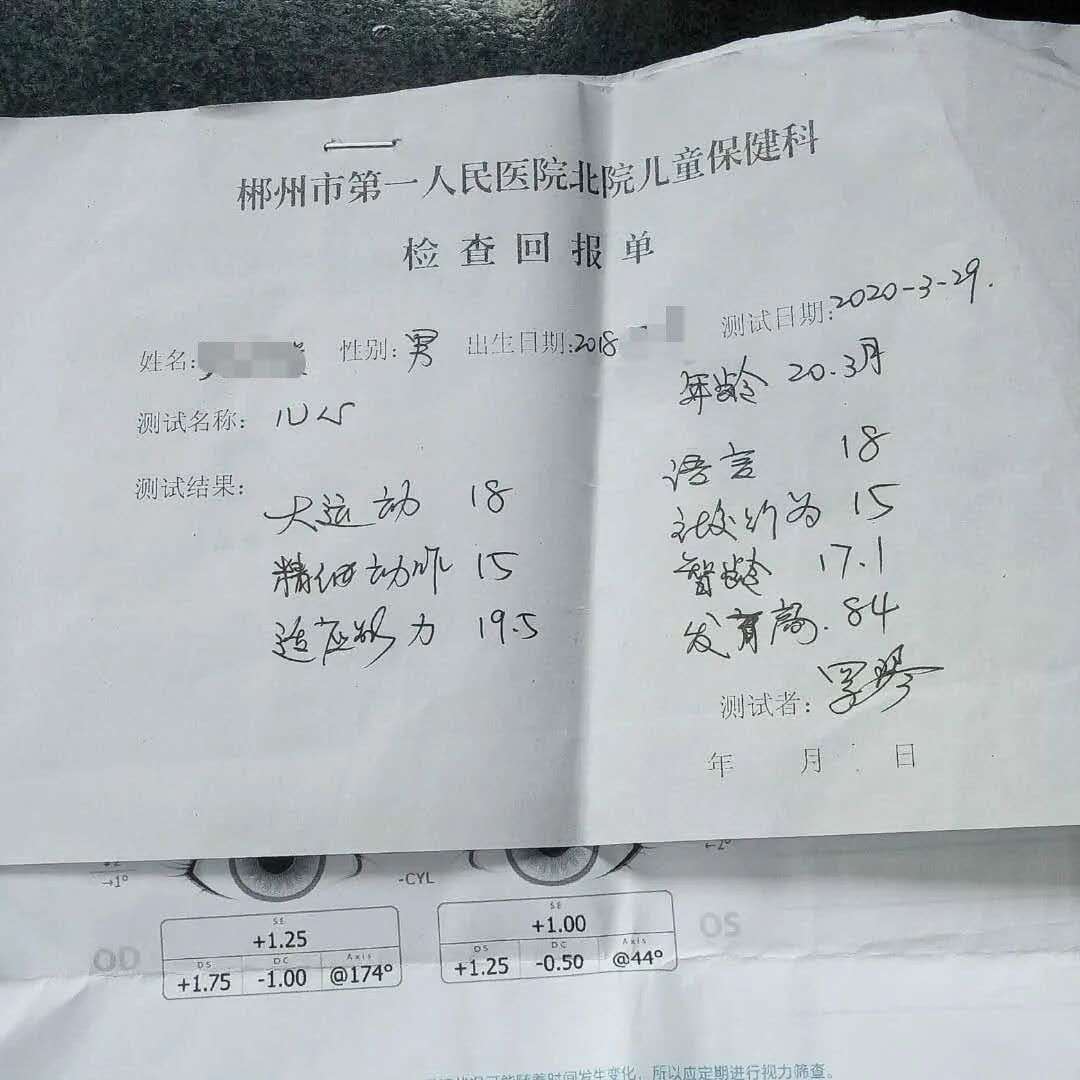 郴州市第一人民医院北院儿童保健科
检查回报单
姓名: 性别: 男 出生日期:2018 测试日期:2020-3-29.
年龄 20.3月
测试名称: 儿心
测试结果:
大运动 18 语言 18
精细动作 15 社交行为 15
适应能力 19.5 智龄 17.1
发育商. 84
测试者:
年 月 日
→1° -CYL ←2°
OD OS
SE SE
+1.25 +1.00
DS DC Axis DS DC Axis
+1.75 -1.00 @174° +1.25 -0.50 @44°
可能随着时间发生变化，所以应定期进行视力筛查。